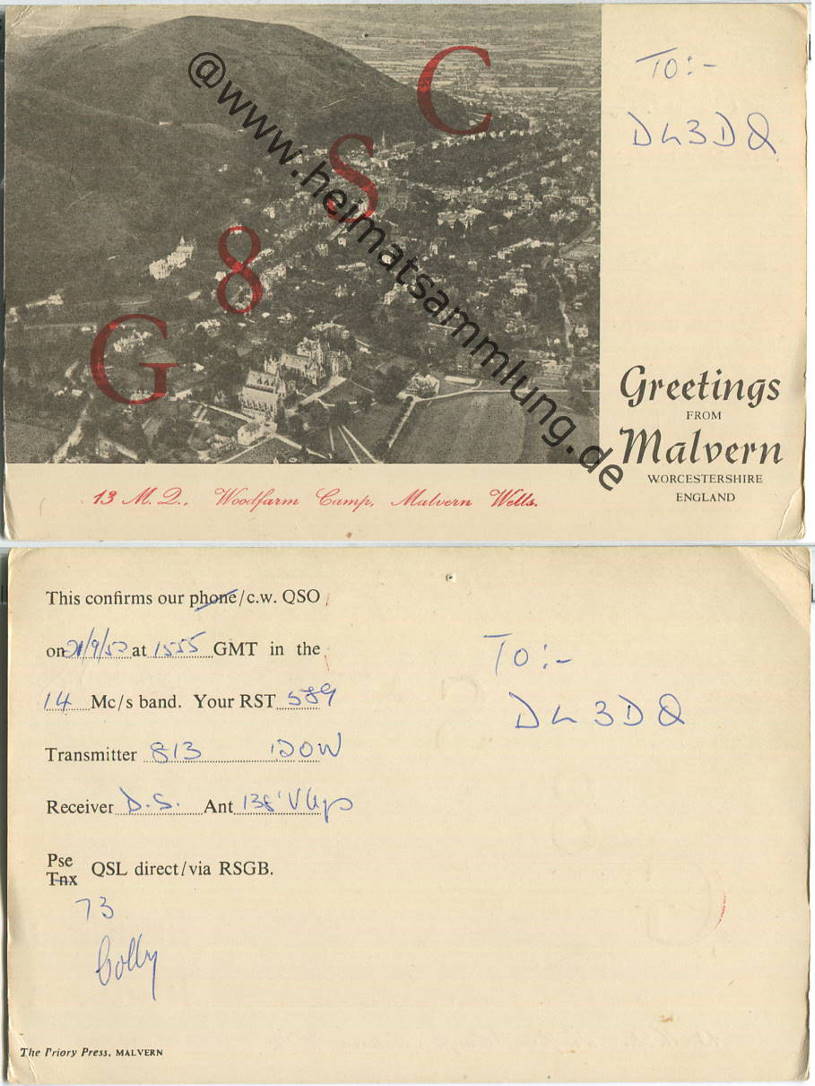 To:-
DL3DQ
G8SC
@www.heimatsammlung.de
Greetings
FROM
Malvern
WORCESTERSHIRE
ENGLAND
13 M. Q., Woodfarm Camp, Malvern Wells.
This confirms our phone/c.w. QSO
on 21/9/50 at 1555 GMT in the
14 Mc/s band. Your RST 589
Transmitter 813 120W
Receiver D.S. Ant 138'
Pse
Tnx QSL direct/via RSGB.
73
To:-
DL3DQ
The Priory Press, MALVERN